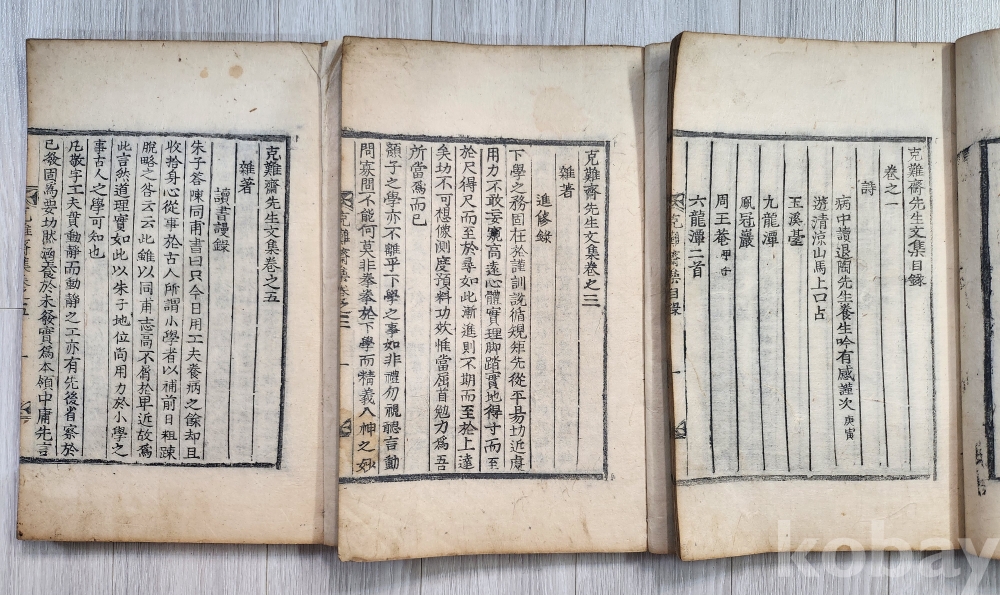 克難齋先生文集目録
卷之一
詩
病中讀退陶先生養生吟有感謹次 庚寅
遊清凉山馬上口占
玉溪臺
九龍潭
風冠巖
周王菴 甲午
六龍潭二首
克難齋先生文集卷之三
雜著
進修錄
下學之務固在於謹訓說循規矩先從平易切近處
用力不敢妄窺高遠心體實理脚踏實地得寸而至
於尺得尺而至於尋如此漸進則不期而至於上達
矣切不可想像測度預料功效惟當屈首勉力爲吾
所當爲而已
顏子之學亦不離乎下學之事如非禮勿視聽言動
問寡問不能何莫非拳拳於下學而精義入神之妙
克難齋先生文集卷之五
雜著
讀書謾錄
朱子答陳同甫書曰只今日用工夫養病之餘却且
收拾身心從事於古人所謂小學者以補前日粗踈
脫略之咎云云此雖以同甫志高不屑於卑近故爲
此言然道理實如此以朱子地位尚用力於小學之
事古人之學可知也
凡敬字工夫貫動靜而動靜之工亦有先後省察於
已發固爲要切然涵養於未發實爲本領中庸先言
kobay